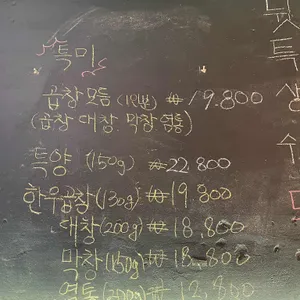 특미
곱창모듬 (1인분) ₩19.800
(곱창 대창 막창 염통)
특양 (150g) ₩22.800
한우곱창(130g) ₩19.800
대창(200g) ₩18.800
막창(150g) ₩18.800
염통(200g) ₩12,800
특
생
수